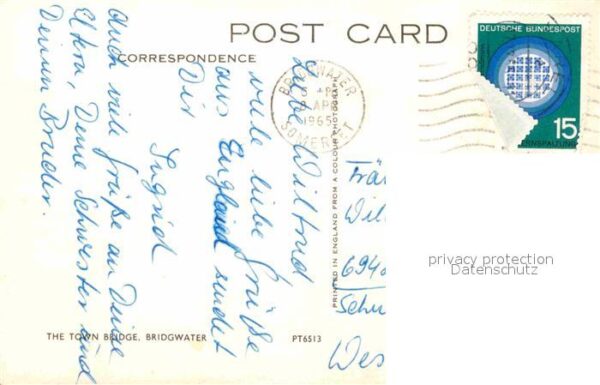 POST CARD
CORRESPONDENCE
Liebe Wiltrud
viele liebe Grüße
aus England sendet
Dir
Ingrid
Auch viele Grüße an Deine
Deine Schwester und
Deinen Bruder.
THE TOWN BRIDGE, BRIDGWATER
PT6513
PRINTED IN ENGLAND FROM A COLOUR PHOTOGRAPH
BRIDGWATER
APR
1965
SOMERSET
DEUTSCHE BUNDESPOST
15
ERNSPALTUNG
Wil
694
Wes
privacy protection
Datenschutz